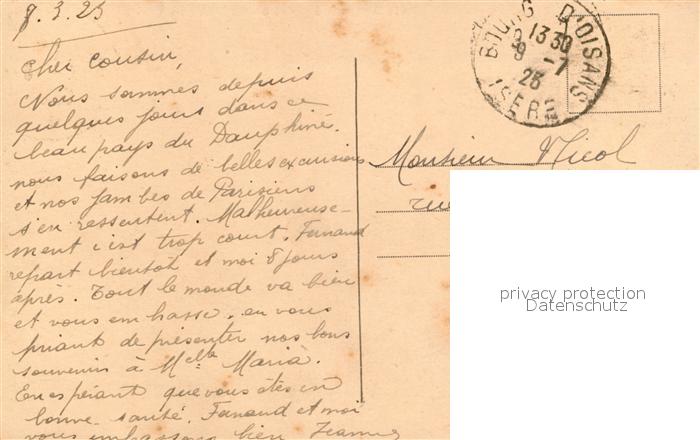 8.3.25
Cher Cousin,
Nous sommes depuis
quelques jours dans ce
beau pays du Dauphiné.
nous faisons de belles excursions
et nos jambes de Parisiens
s'en ressentent. Malheureuse-
ment c'est trop court. Fernand
repart bientôt et moi 8 jours
après. Tout le monde va bien
et vous embrasse. en vous
priant de présenter nos bons
souvenirs à Melle Maria.
En espérant que vous êtes en
bonne santé. Fernand et moi
vous embrassons bien Jeanne
BOURG D'OISANS
13 30
9 -7
25
ISERE
Monsieur Nicol
rue
privacy protection
Datenschutz